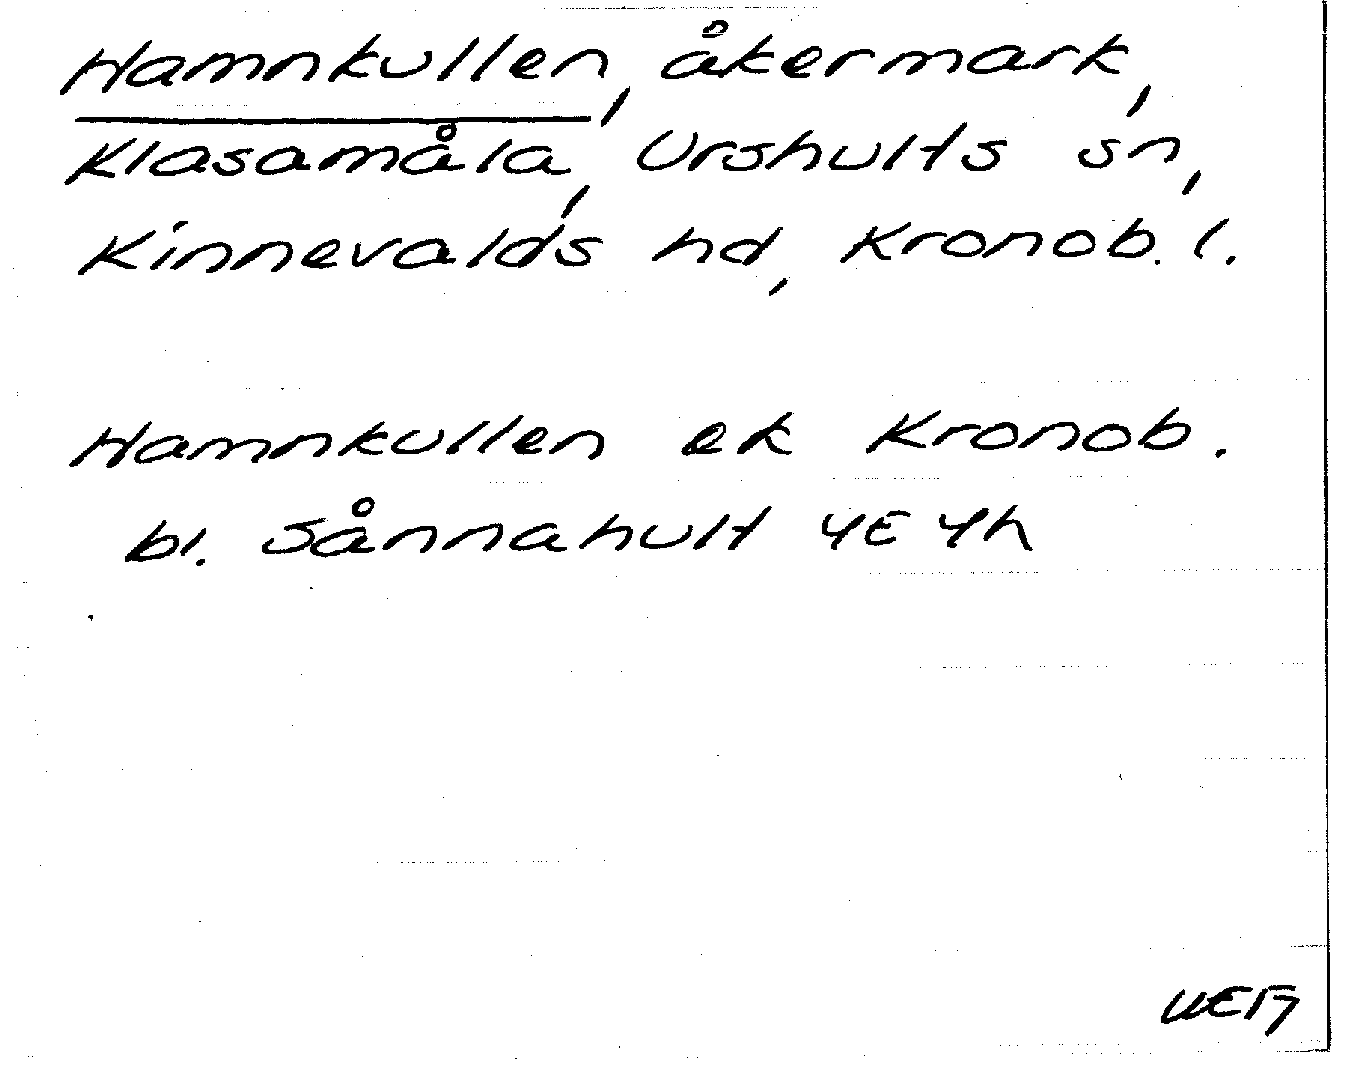 Hamnkullen, åkermark,
Klasamåla, Urshults sn,
Kinnevalds hd, Kronob. l.
Hamnkullen ek Kronob.
bl. Sånnahult 4E 4h